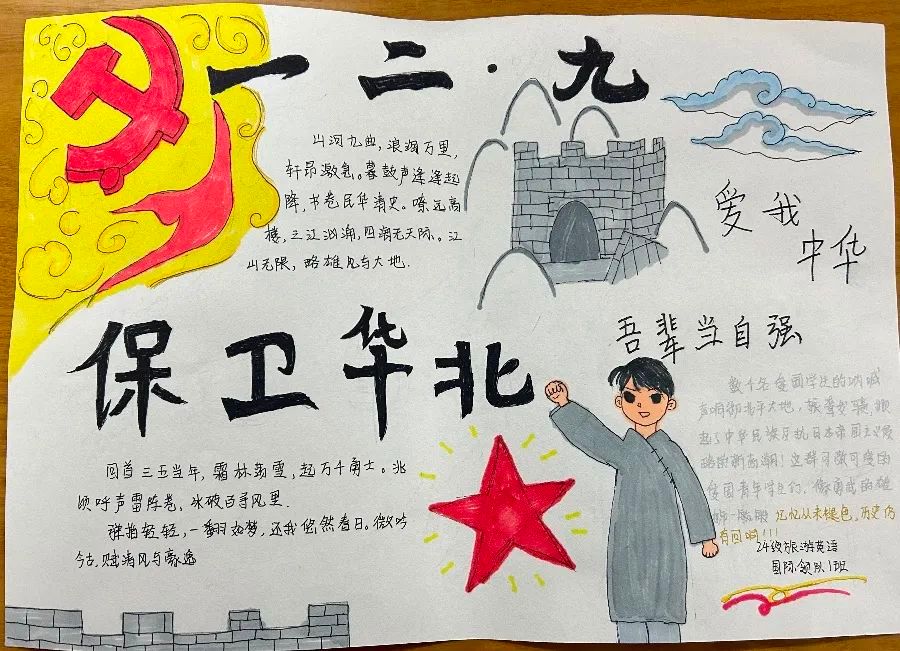 一二·九
山河九曲，浪涌万里，
轩昂激怠。暮鼓声逢逢起
阵，书卷民华清史。嘹远高
楼，三江汹涌，四海无天际。江
山无限，略雄见与大地.
爱我
中华
保卫华北
吾辈当自强
数千名爱国学生的呐喊
声响彻北平大地，
起了中华民族反抗日本帝国主义侵
略的新高潮！这群可敬可爱的
爱国青年学生们，
记忆从未褪色，历史仍
有回响!!!
回首三五当年，霜林劲雪，起万千勇士。兆
颂呼声雷阵卷，冰破百寻风里.
群拍轻轻，一翻如梦，还我悠然春日。微吟
今古,赋清风与豪逸
24级旅游英语
国际领队1班